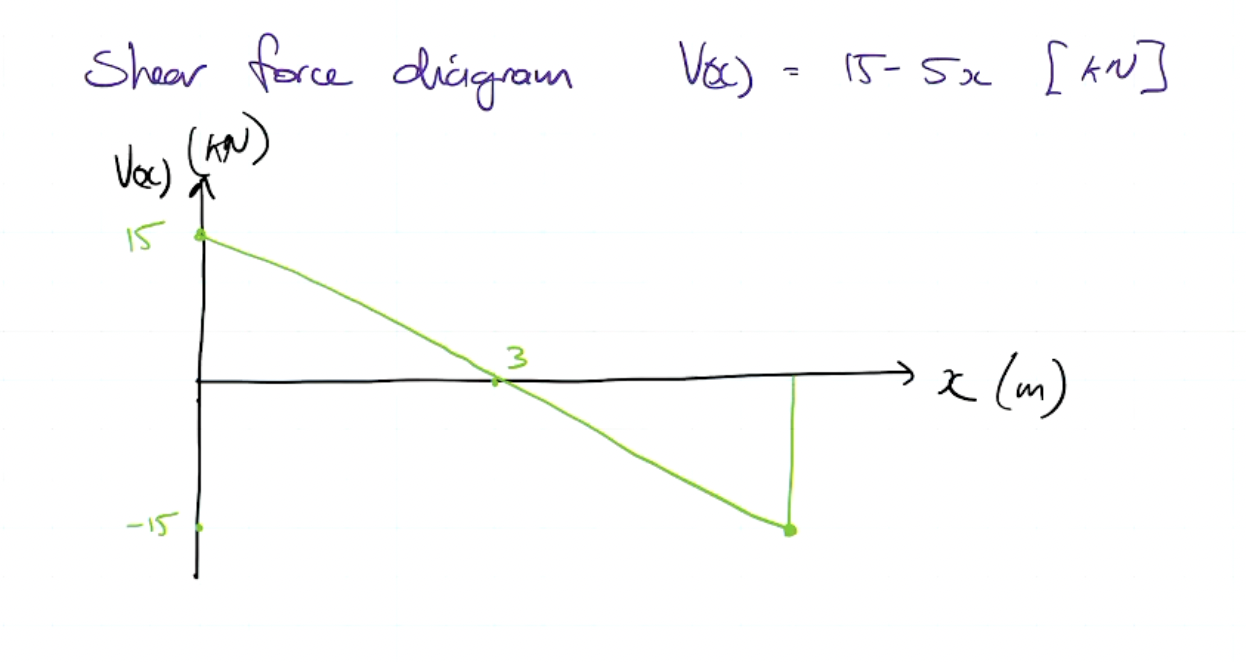 Shear force diagram V(x) = 15 - 5x [kN]
V(x) (kN)
15
3
x (m)
-15